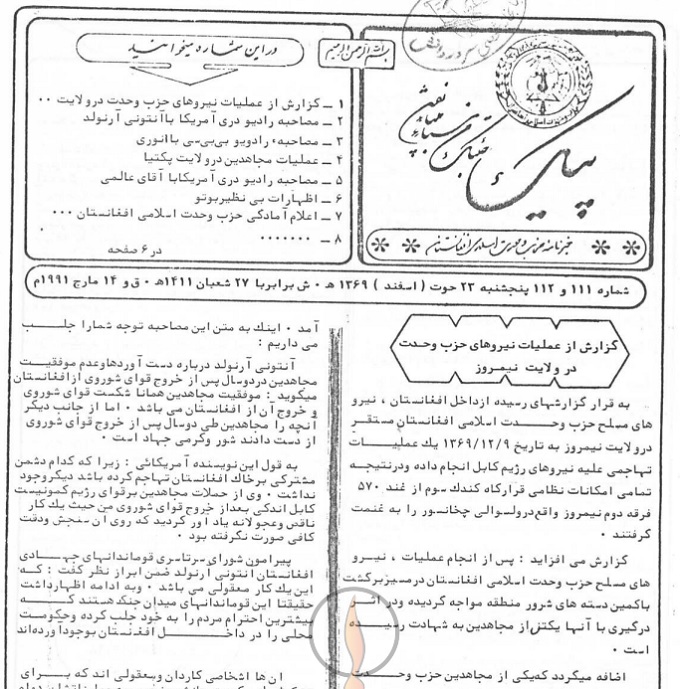 بسم الله الرحمن الرحیم
پیک
خبرنامه حزب وحدت اسلامی افغانستان
در این شماره میخوانید
۱ ــ گزارش از عملیات نیروهای حزب وحدت درولایت ۰۰
۲ ــ مصاحبه رادیو دری آمریکا باآنتونی آرنولد
۳ ــ مصاحبهء رادویو بی‌بی‌سی باانوری
۴ ــ عملیات مجاهدین درولایت پکتیا
۵ ــ مصاحبه رادیو دری آمریکابا آقای عالمی
۶ ــ اظهارات بی نظیربوتو
۷ ــ اعلام آمادگی حزب وحدت اسلامی افغانستان ۰۰۰
۸ ــ ۰۰۰۰۰۰۰
در ۶ صفحه
شماره ۱۱۱ و ۱۱۲ پنجشنبه ۲۳ حوت ( اسفند ) ۱۳۶۹ هـ ۰ ش برابربا ۲۷ شعبان ۱۴۱۱هـ ۰ ق و ۱۴ مارچ ۱۹۹۱م
گزارش از عملیات نیروهای حزب وحدت
در ولایت نیمروز
به قرار گزارشهای رسیده ازداخل افغانستان ، نیرو
های مسلح حزب وحدت اسلامی افغانستان مستقر
درولایت نیمروز به تاریخ ۱۳۶۹/۱۲/۹ یك عملیات
تهاجمی علیه نیروهای رژیم کابل انجام داده ودرنتیجه
تمامی امکانات نظامی قرارگاه کندك سوم از غند ۵۷۰
فرقه دوم نیمروز واقع درولسوالی چخانسور را به غنمت
گرفتند ۰
گزارش می افزاید : پس از انجام عملیات ، نیرو
های مسلح حزب وحدت اسلامی افغانستان درمسیربرگشت
باکمین دسته های شرور منطقه مواجه گردیده ودر اثر
درگیری با آنها یکتن از مجاهدین به شهادت رسیده
است ۰
اضافه میگردد که‌یکی از مجاهدین حزب وحدت
آمد ۰ اینك به متن این مصاحبه توجه شمارا جلب
می داریم :
آنتونی آرنولد درباره دست آوردهاوعدم موفقیت
مجاهدین دردوسال پس از خروج قوای شوروی ازافغانستان
میگوید : موفقیت مجاهدین همانا شکست قوای شوروی
و خروج آن از افغانستان می باشد ۰ اما از جانب دیگر
آنچه را مجاهدین طی دوسال پس از خروج قوای شوروی
از دست دادند شور وگرمی جهاد است ۰
به قول این نویسنده آمریکائی : زیرا که کدام دشمن
مشترکی برخاك افغانستان تهاجم کرده باشد دیگروجود
نداشت ۰ وی از حملات مجاهدین برقوای رژیم کمونیست
کابل اندکی بعداز خروج قوای شوروی من حیث یك کار
ناقص وعجولانه یاد آور گردید که روی آن سنجش ودقت
کافی صورت نگرفته بود ۰
پیرامون شورای سرتاسری قوماندانهای جهادی
افغانستان آنتونی آرنولد ضمن ابراز نظر گفت : که
این یك کار معقولی می باشد ۰ وبه ادامه اظهارداشت
حقیقتا این قوماندانهای میدان جنگ هستند که
بیشترین احترام مردم را به خود جلب کرده وحکومت
محلی را در داخل افغانستان بوجودآورده‌اند
۰
آن ها اشخاصی کاردان ومعقولی اند که برای